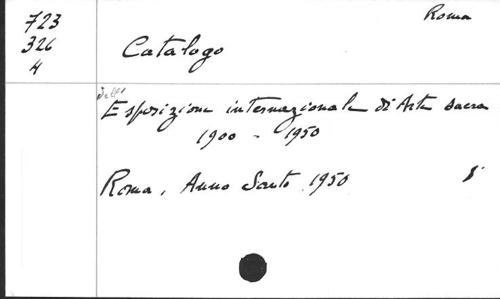 723
326
4
Roma
Catalogo
dell'
Esposizione internazionale di Arte sacra
1900 - 1950
Roma, Anno Santo 1950
8°